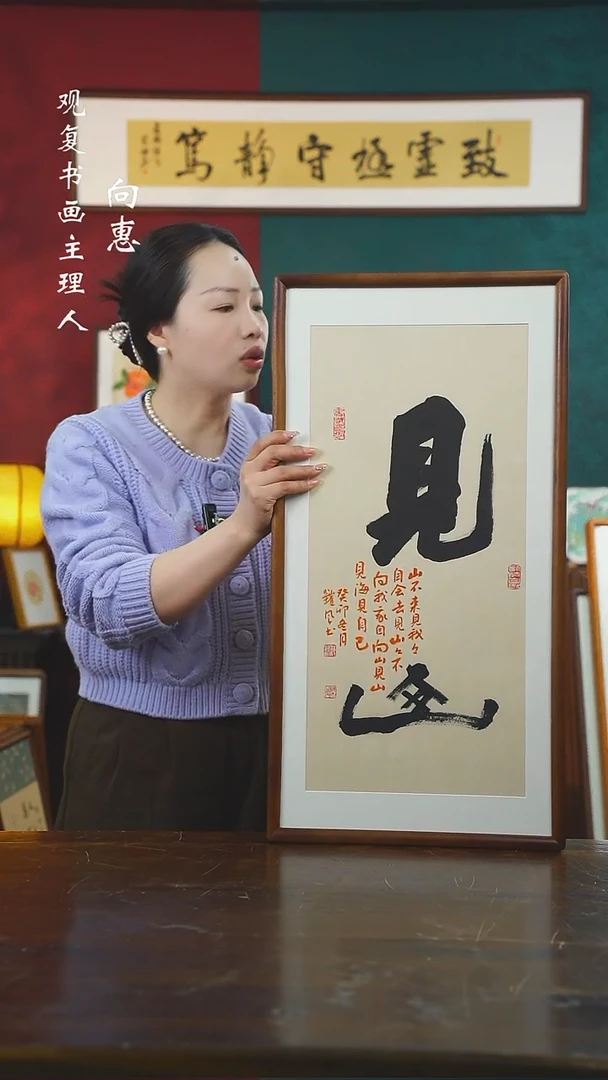 观复书画主理人
向惠
致虛極守靜篤
見山
山不来見我々
自会去見山々不
向我我自向山見山
見海見自己
癸卯冬月